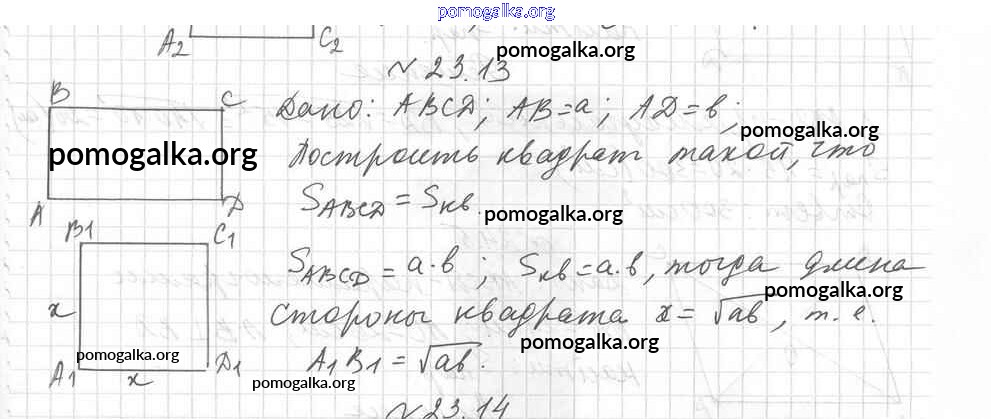 pomogalka.org
A2 C2
pomogalka.org
№ 23.13
B C
Дано: ABCD; AB=a; AD=b;
pomogalka.org
pomogalka.org
Построить квадрат такой, что
A D
SABCD = Sкв.
pomogalka.org
B1 C1
SABCD = a·b; Sкв=a·b, тогда длина
pomogalka.org
x
стороны квадрата x = √ab, т. е.
pomogalka.org
pomogalka.org
A1 D1
A1B1 = √ab.
x
pomogalka.org
№ 23.14